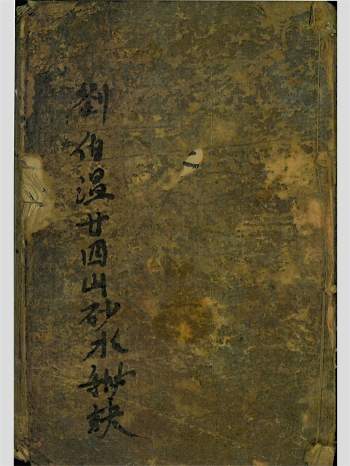 劉伯溫廿四山砂水秘訣